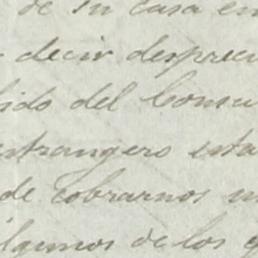 de su casa en
decir despreci
bido del Consu
entrangero esta
de cobrarnos un
algunos de los q